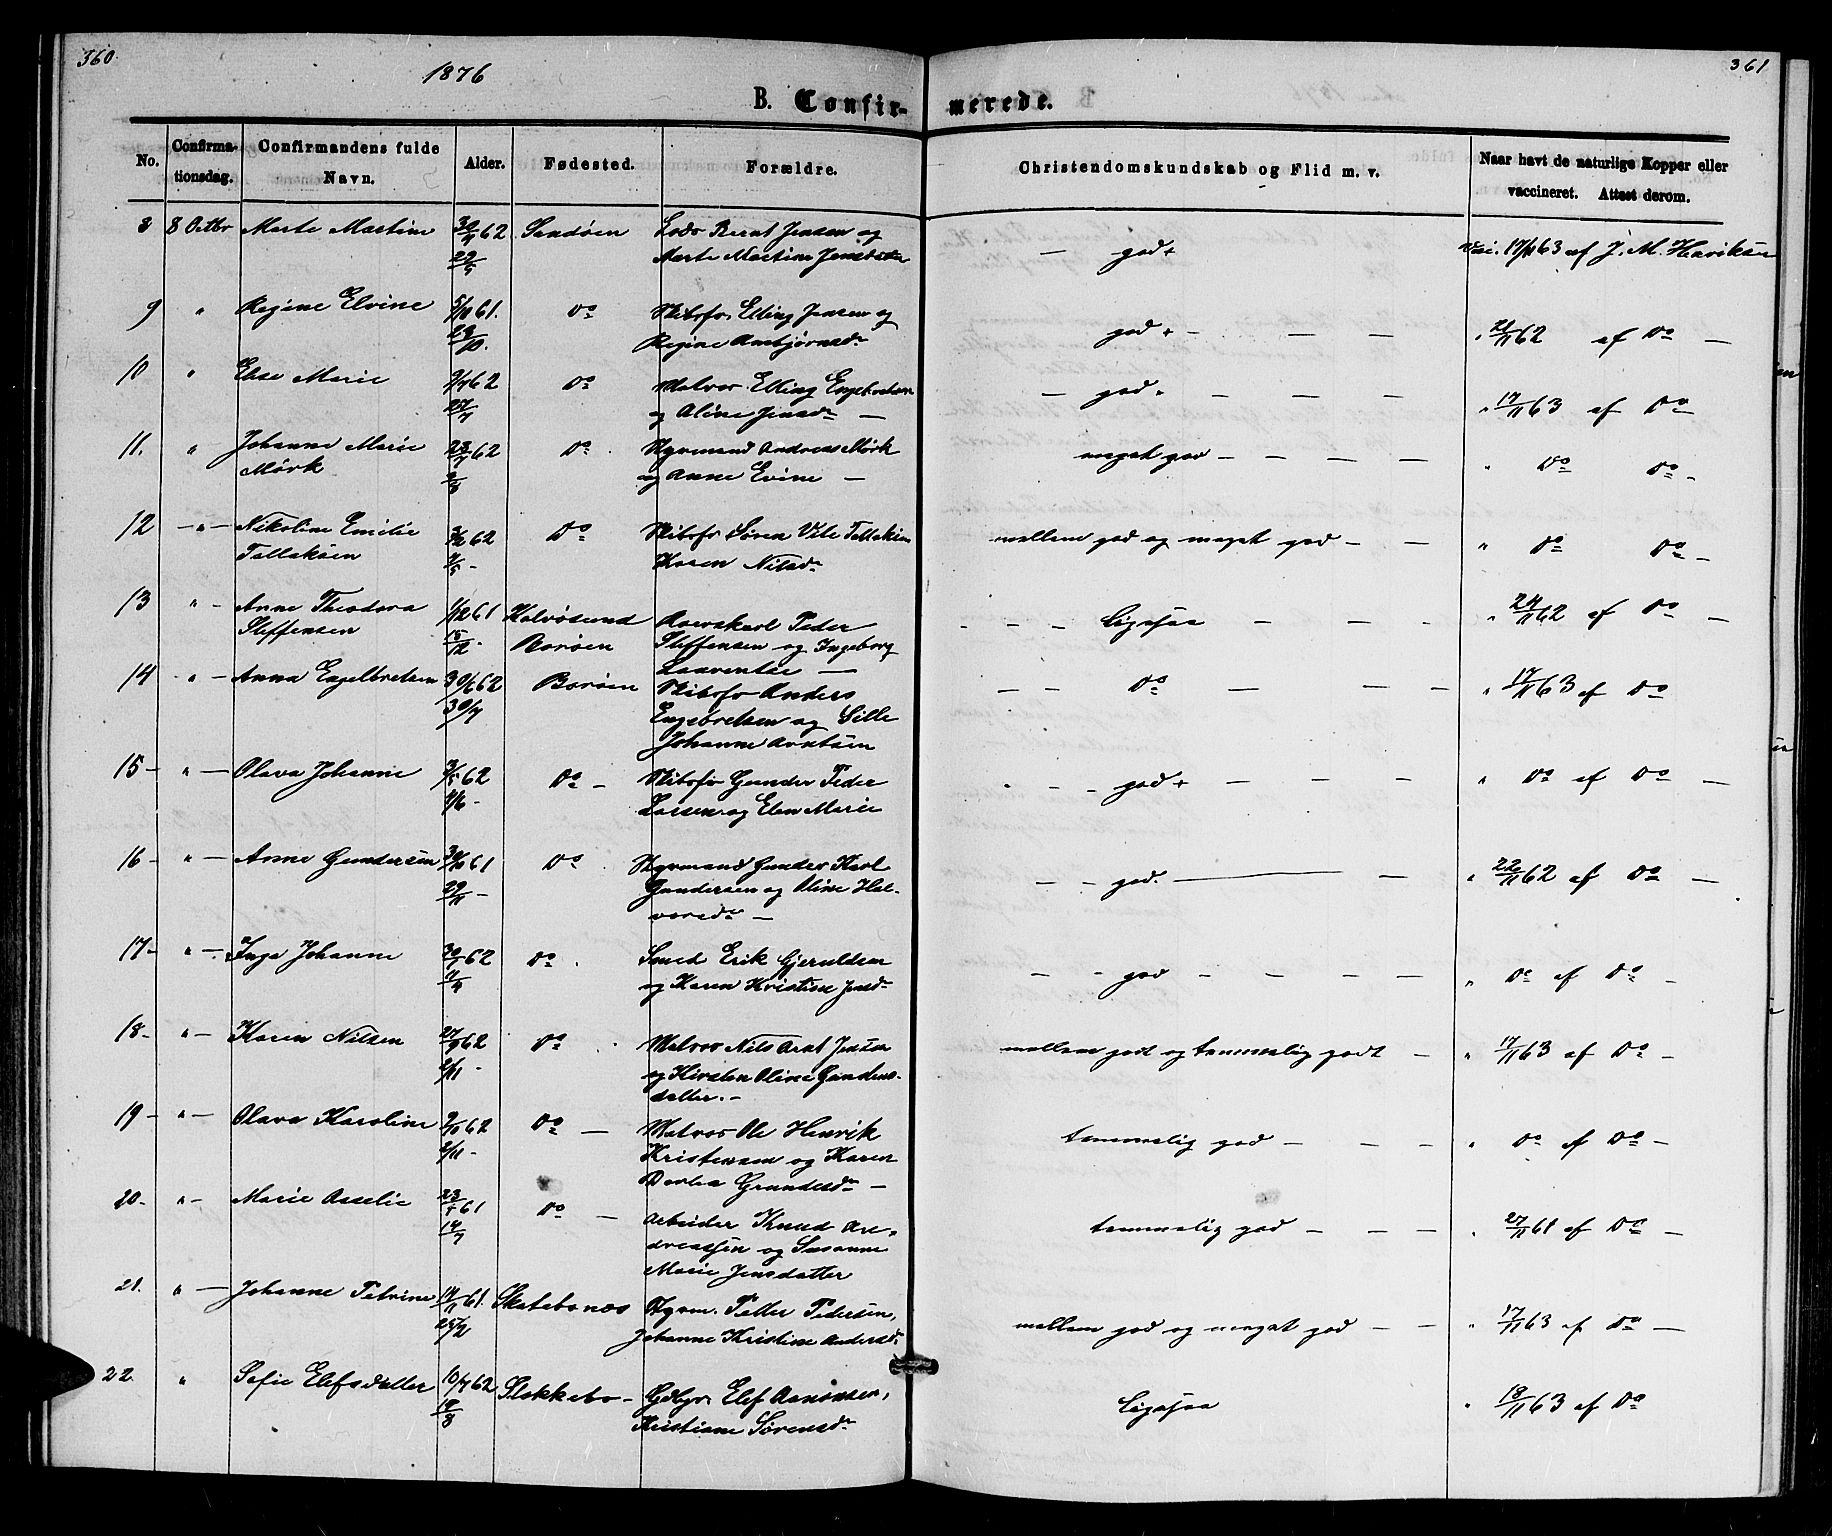 360.
1876
361
B. Confir-
merede.
No.
Confirma-
tionsdag.
Confirmandens fulde
Navn.
Alder.
Fødested.
Forældre.
Christendomskundskab og Flid m. v.
Naar havt de naturlige Kopper eller
vaccineret. Attest derom.
8 8 Octbr Marte Martine 30/4 62 Sandøen Lods Bernt Jensen og
29/5 Marte Martine Jensdr
— god + vac. 17/11 63 af J. M. Henriksen
9 " Regine Elvine 5/10 61. Do Skibsfr. Elling Jensen og
29/10. Regine Ansbjørnsdr
god + — — — — " 21/11 62 af Do —
10 " Else Marie 9/4 62 Do Matros Elling Engebretsen
27/7 og Aline Jensdr —
— god — — — — " 17/11 63 af Do
11. " Johanne Marie 23/7 62 Do Styrmand Andreas Mørk
Mørk og Anne Evine —
meget god — — — — " Do Do —
12 — " — Nikoline Emilie 3/2 62 Do Skibsfr Søren Vile Tellaksen
Tellaksen 4/5 — Karen Nilsdr
mellem god og meget god — — " Do Do —
13 " — Anne Theodora 1/12 61 Kalvøsund Aarskarl Peder
Steffensen 15/12 — Borøen Steffensen og Ingeborg
Laurentie —
— — — Ligesaa — — — " 24/11 62 af Do —
14 — " — Anna Engelbretsen 30/6 62 Borøen Skibsfr Anders
30/7 Engebretsen og Sille
Johanne Arntsen
— — Do — — — " 17/11 63 af Do
15 — " — Olava Johanne 3/5 62 Do — Skibsfr Gunder Peder
4/6 — Larsen og Elen Marie
— — god + — — — — " Do af Do —
16 — " — Anne Gundersen 30/10 61 Do Styrmand Gunder Karl
29/11 — Gundersen og Oline Hal-
vorsdr —
— — god. — — " 22/11 62 af Do —
17 — " — Inga Johanne 30/1 62 Do . Smed Erik Gjeruldsen
11/4 og Karen Kristine Jensdr
— — god — — — — " Do af Do —
18 — " — Karen Nilsen 27/9 62 Do . Matros Nils Arnt Jensen
2/11 — og Kirsten Oline Gunders-
datter. —
mellem godt og temmelig godt — " 17/11 63 af Do —
19 — " — Olava Karoline 9/10 62 Do — Matros Ole Henrik
2/11 — Kristensen og Karen
Dorthea Gundersdr —
temmelig god — — — " Do af Do —
20 — " — Marie Asselie 23/5 61 Do — Arbeider Knud An-
14/7 dreassen og Susanne
Marie Jensdatter
temmelig god — — — " 27/11 61 af Do —
21. " — Johanne Petrine 14/11 61. Skatebonæs Styrm. Peller Pedersen,
25/12 Johanne Kristine Andersdr
mellem god og meget god — — " 17/11 63 af Do —
22. " Sofie Elefsdatter 10/7 62 Slokkebo — Gdbgr. Elef Aanonsen,
18/8 Kristiane Sørensdr
Ligesaa " 18/11 63 af Do